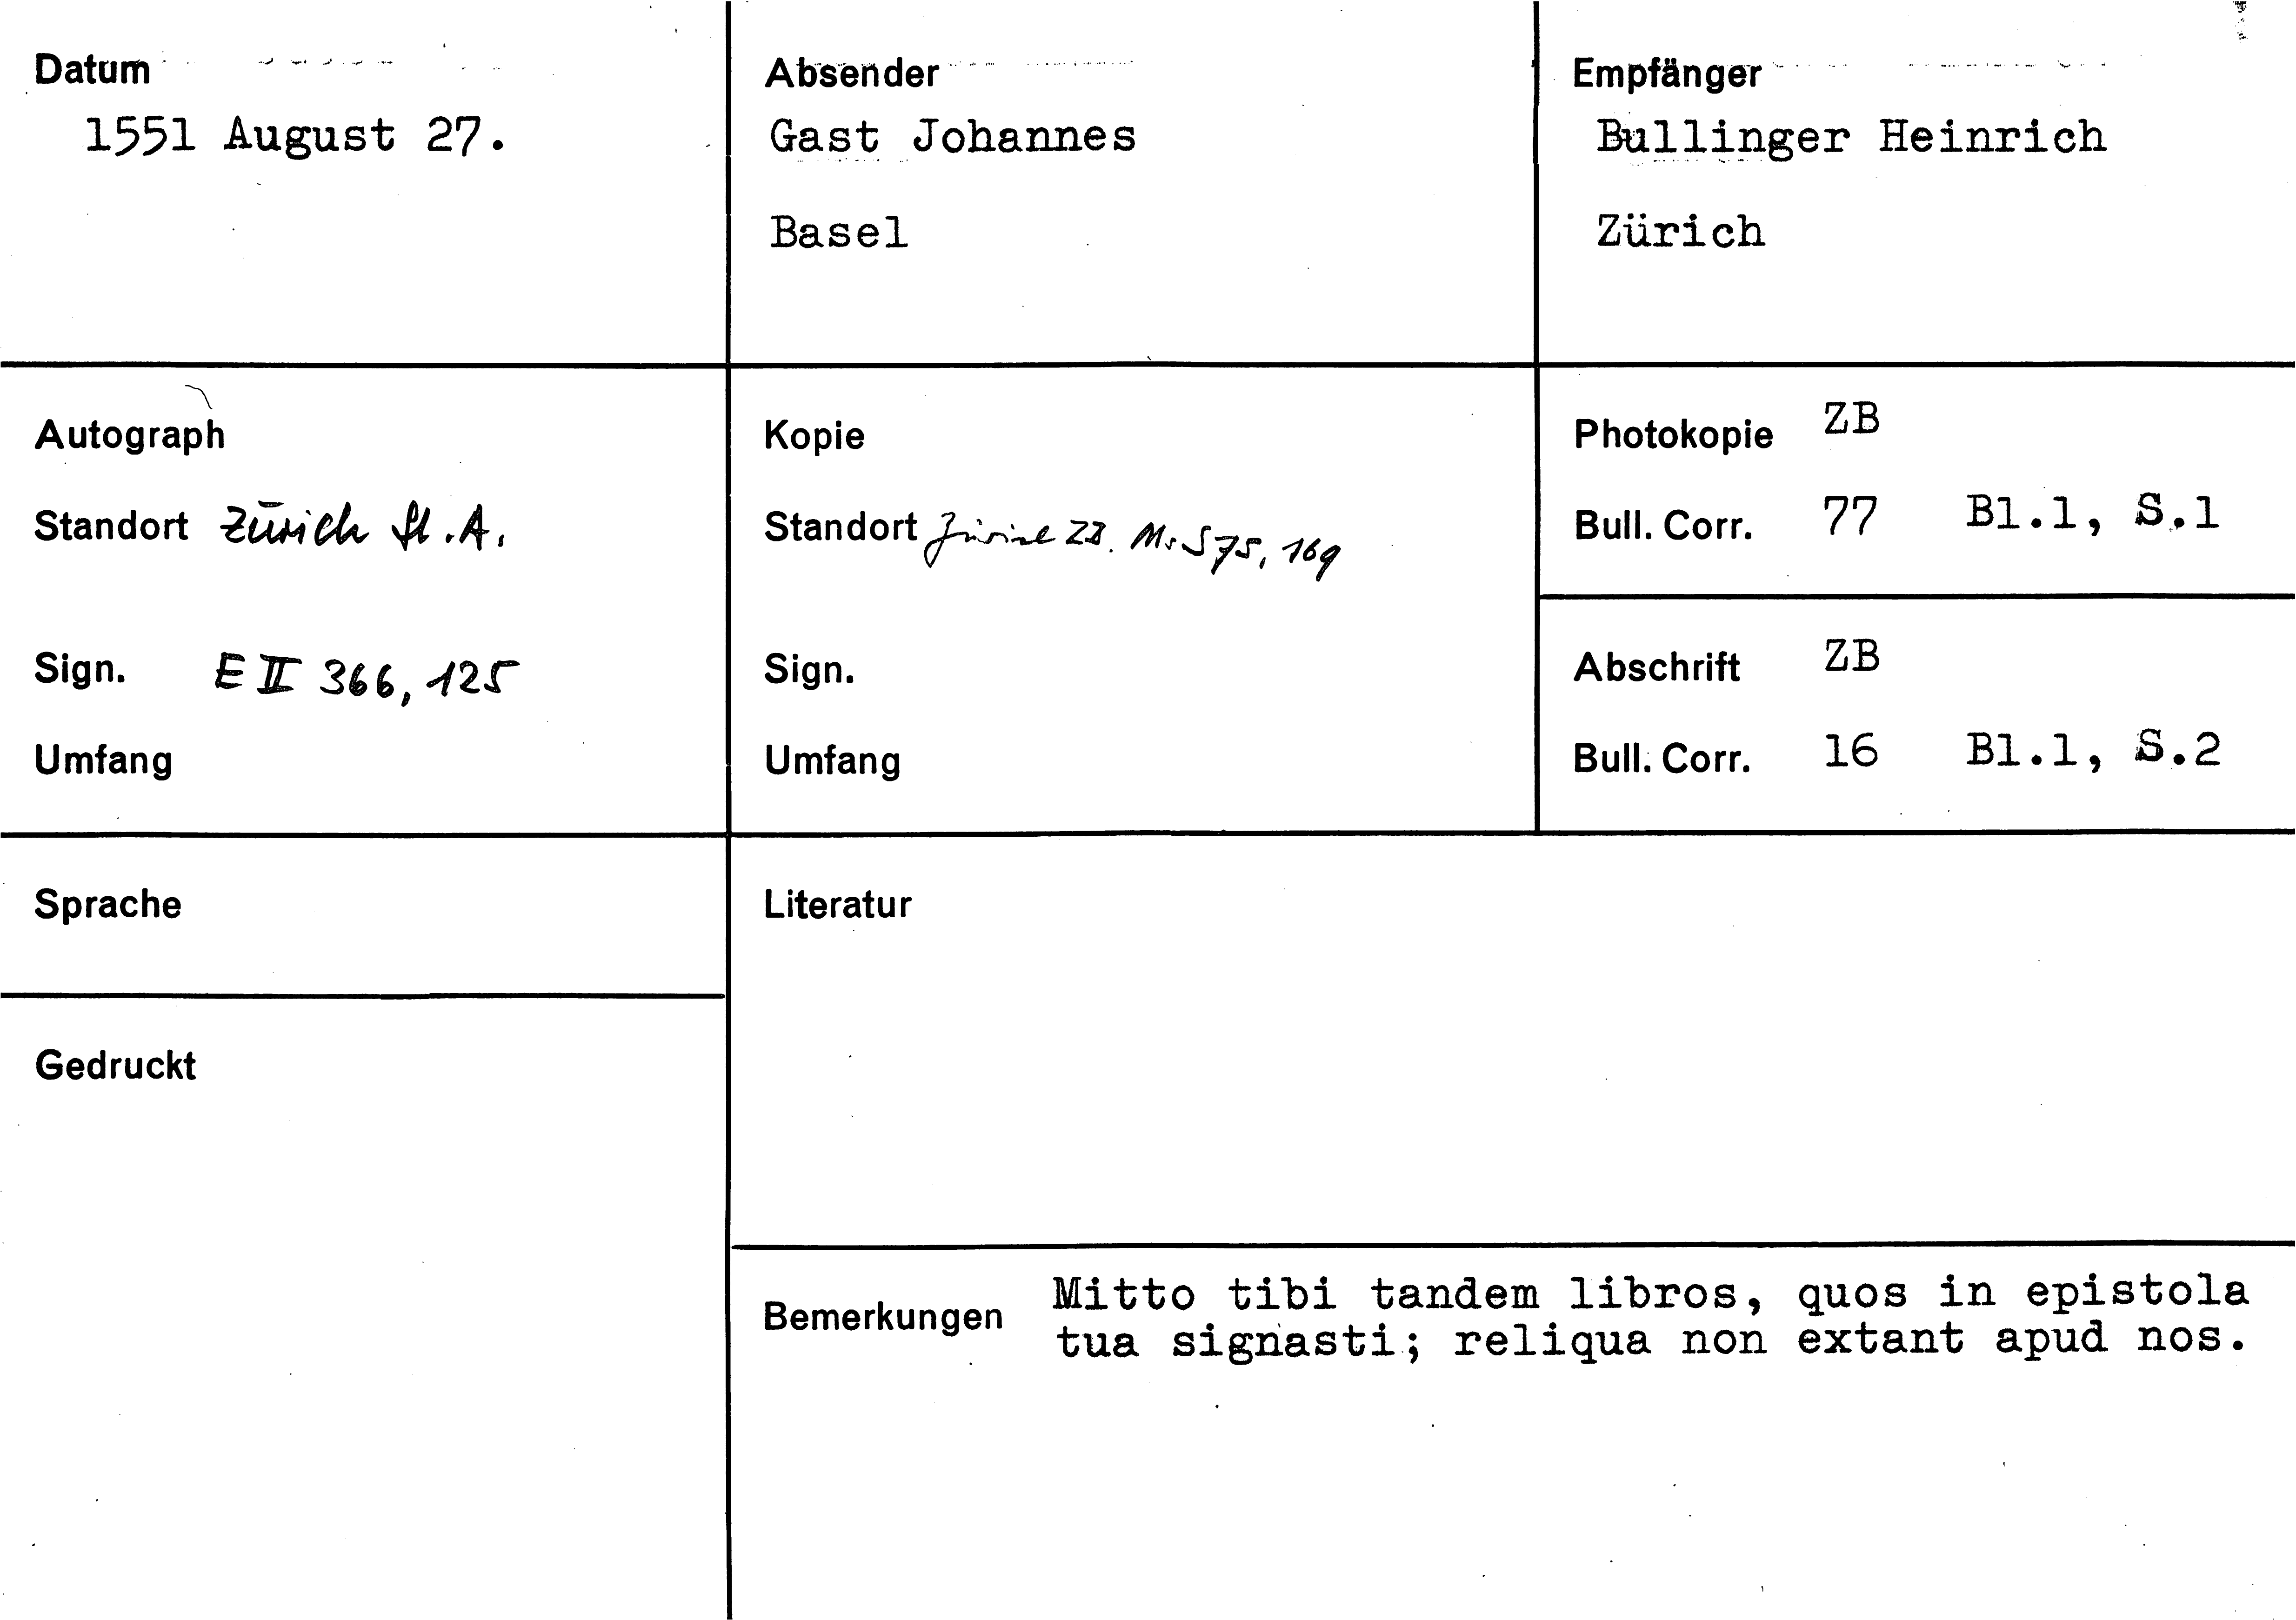 Datum
1551 August 27.
Absender
Gast Johannes
Basel
Empfänger
Bullinger Heinrich
Zürich
Autograph
Standort Zürich St.A.
Sign. E II 366, 125
Umfang
Kopie
Standort Zürich ZB. Ms S 75, 169
Sign.
Umfang
Photokopie ZB
Bull. Corr. 77 Bl.1, S.1
Abschrift ZB
Bull. Corr. 16 Bl.1, S.2
Sprache
Gedruckt
Literatur
Bemerkungen
Mitto tibi tandem libros, quos in epistola
tua signasti; reliqua non extant apud nos.